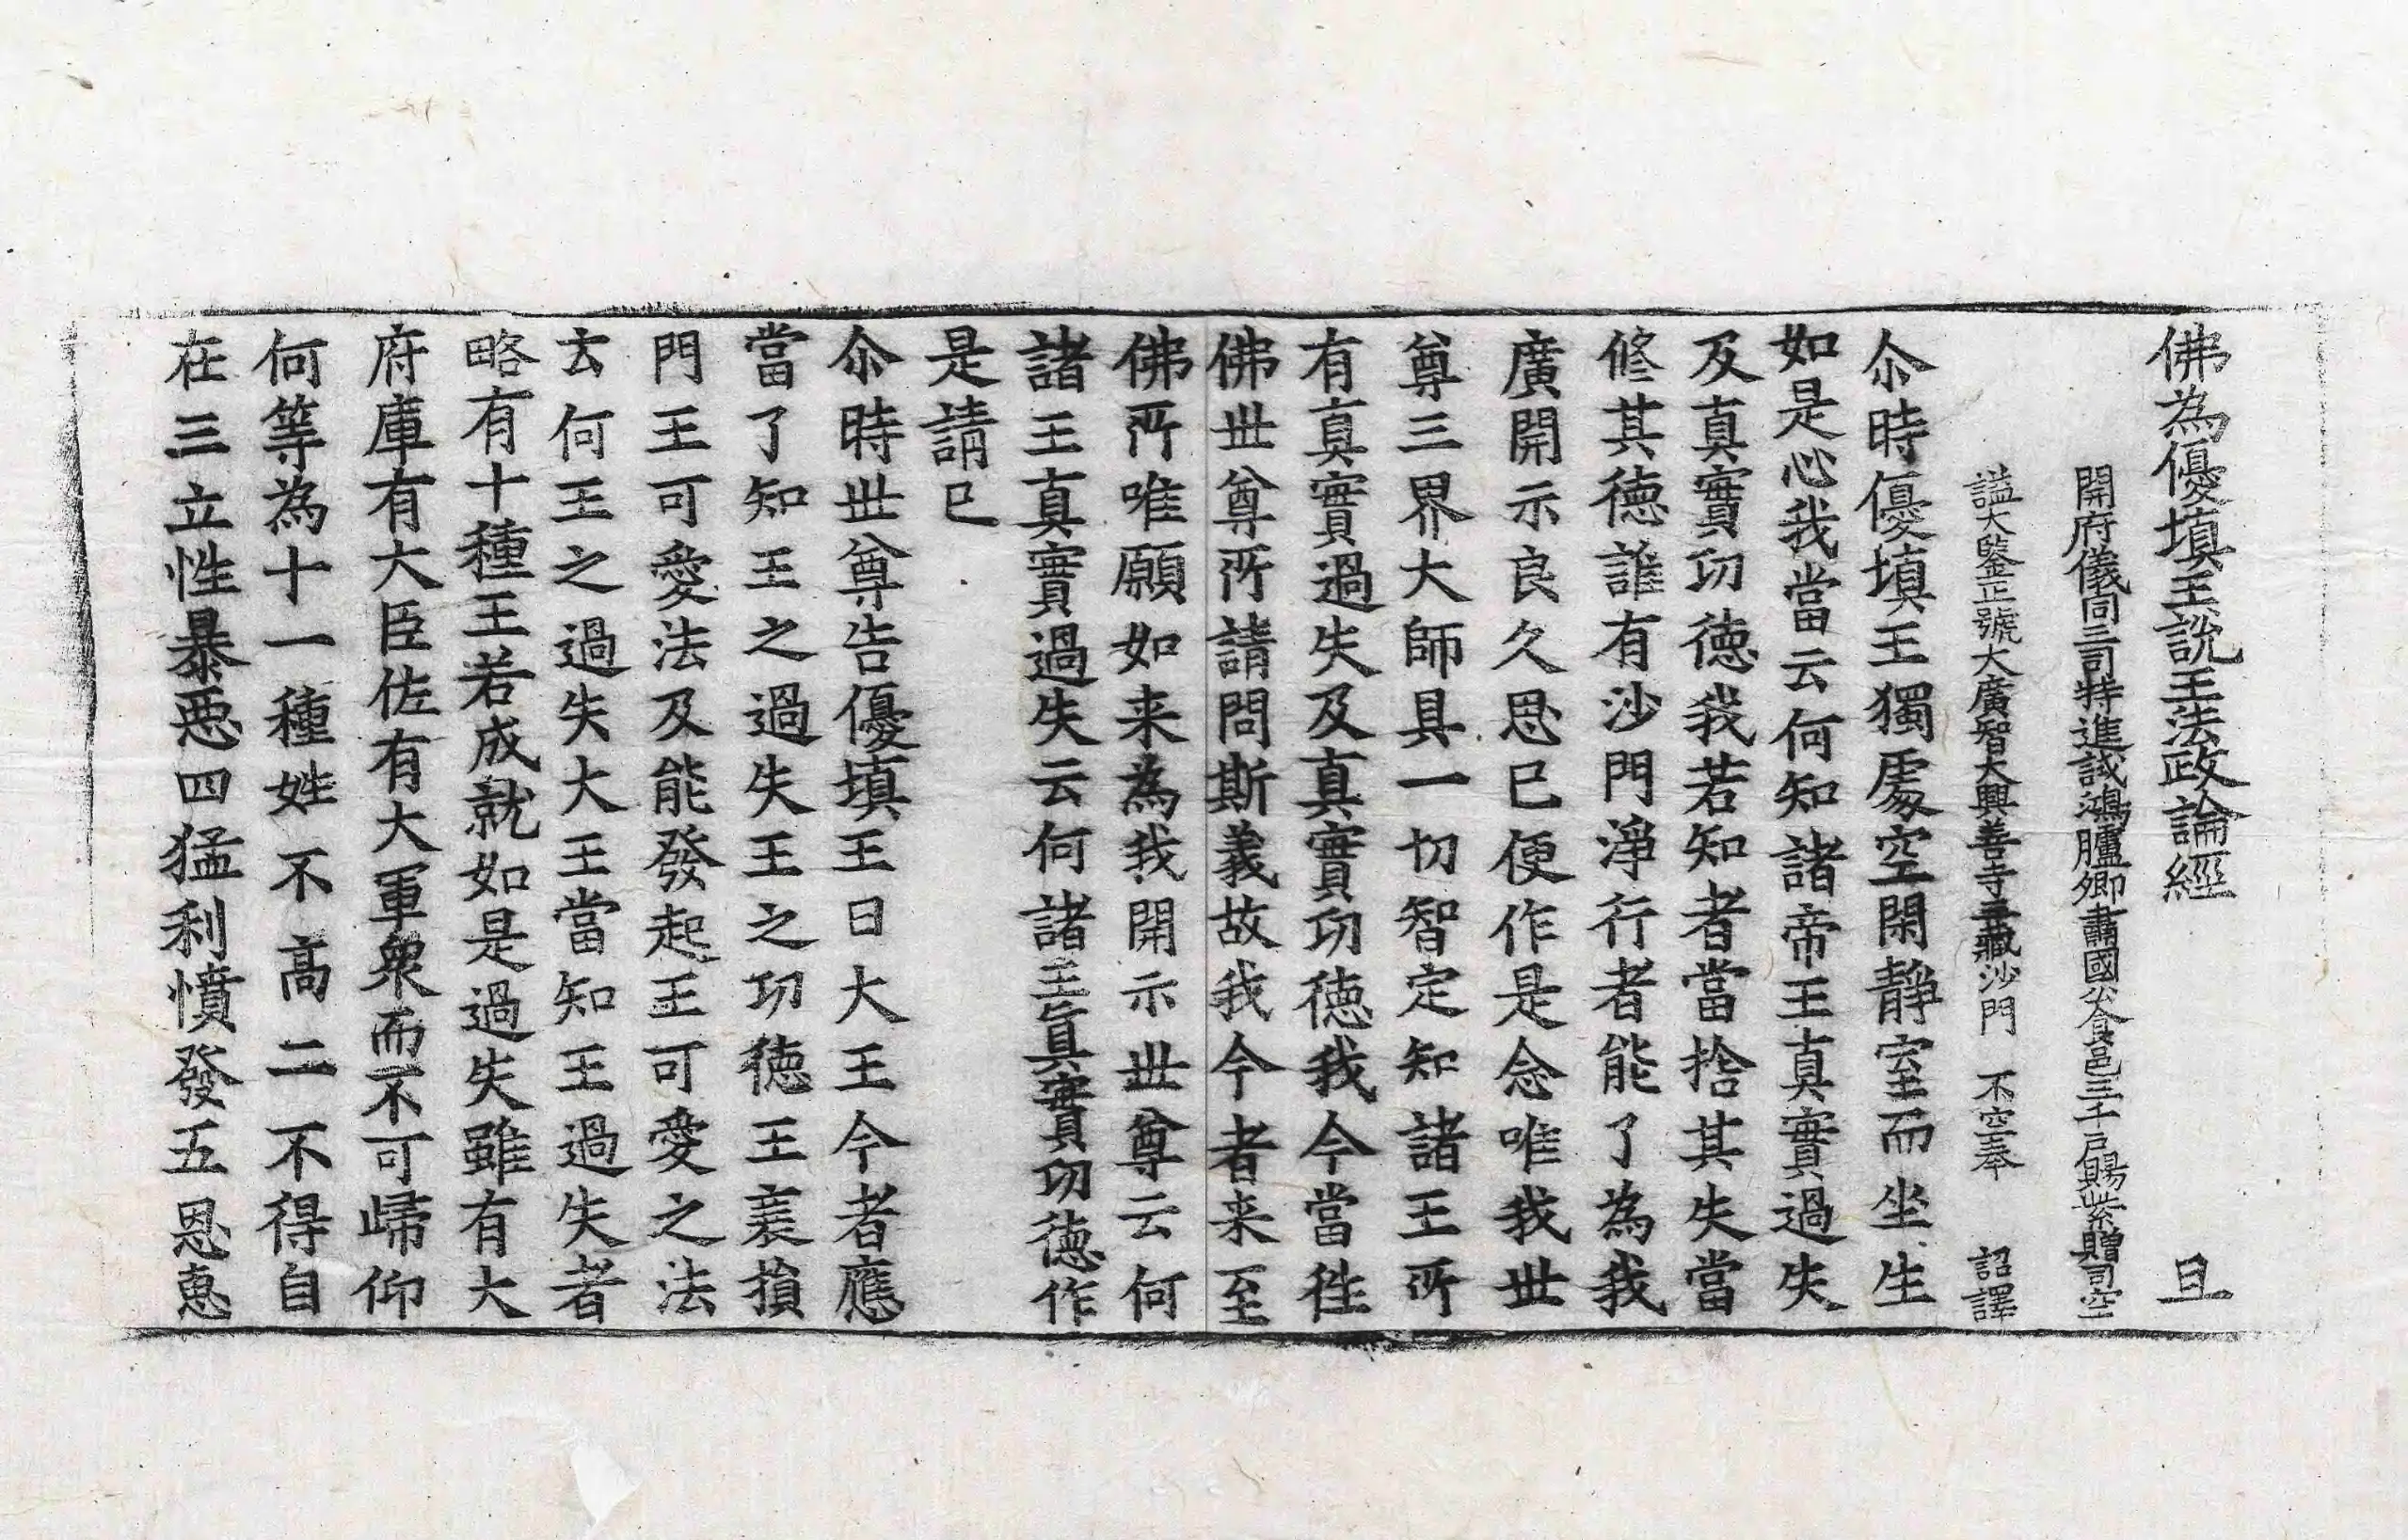 佛為優填王說王法政論經 且
開府儀同三司特進試鴻臚卿肅國公食邑三千戶賜紫贈司空
謚大鑒正號大廣智大興善寺三藏沙門 不空奉 詔譯
尒時優填王獨處空閑靜室而坐生
如是心我當云何知諸帝王真實過失
及真實功徳我若知者當捨其失當
修其徳誰有沙門淨行者能了為我
廣開示良久思已便作是念唯我世
尊三界大師具一切智定知諸王所
有真實過失及真實功徳我今當往
佛世尊所請問斯義故我今者来至
佛所唯願如来為我開示世尊云何
諸王真實過失云何諸王真實功徳作
是請已
尒時世尊告優填王曰大王今者應
當了知王之過失王之功徳王衰損
門王可愛法及能發起王可愛之法
云何王之過失大王當知王過失者
略有十種王若成就如是過失雖有大
府庫有大臣佐有大軍衆而不可歸仰
何等為十一種姓不高二不得自
在三立性暴惡四猛利憤發五恩惠